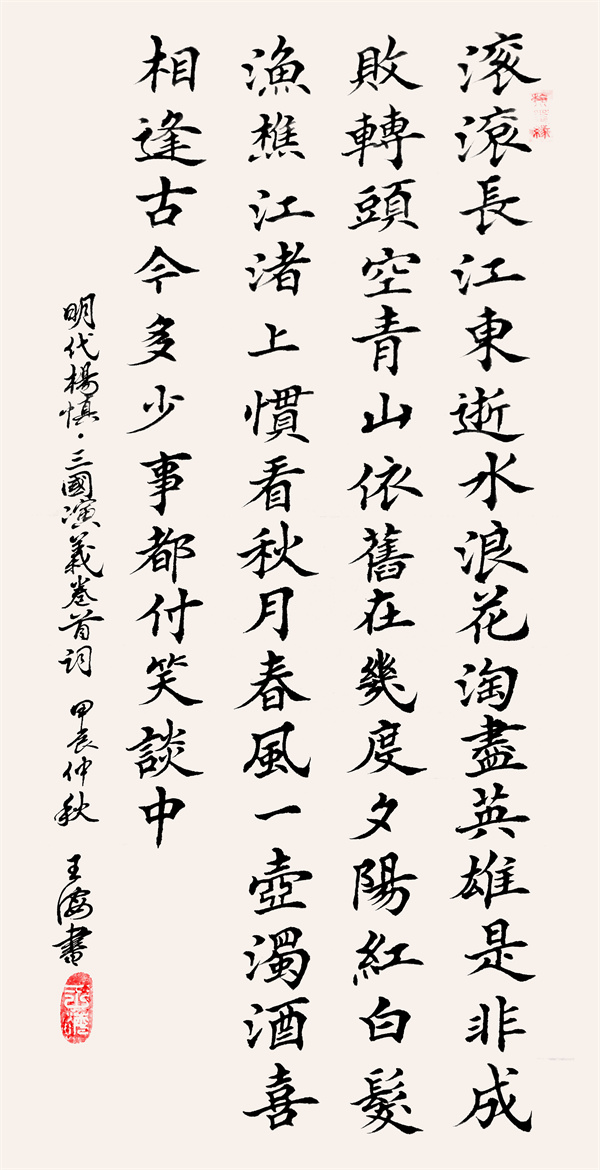 滚滚長江東逝水浪花淘盡英雄是非成
敗轉頭空青山依舊在幾度夕陽紅白髮
漁樵江渚上慣看秋月春風一壺濁酒喜
相逢古今多少事都付笑談中
明代楊慎·三國演義卷首词 甲辰仲秋 王海書